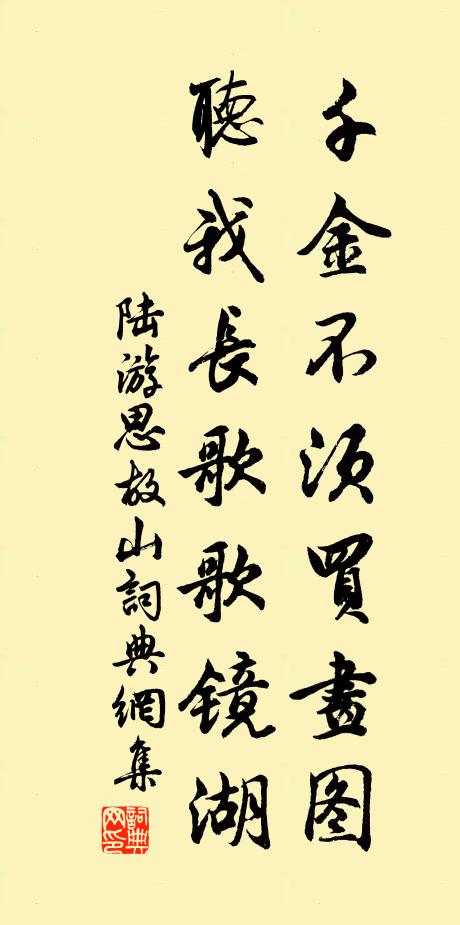 千金不須買畫图
聽我長歌歌镜湖
陆游思故山詞典網集
詞典网印